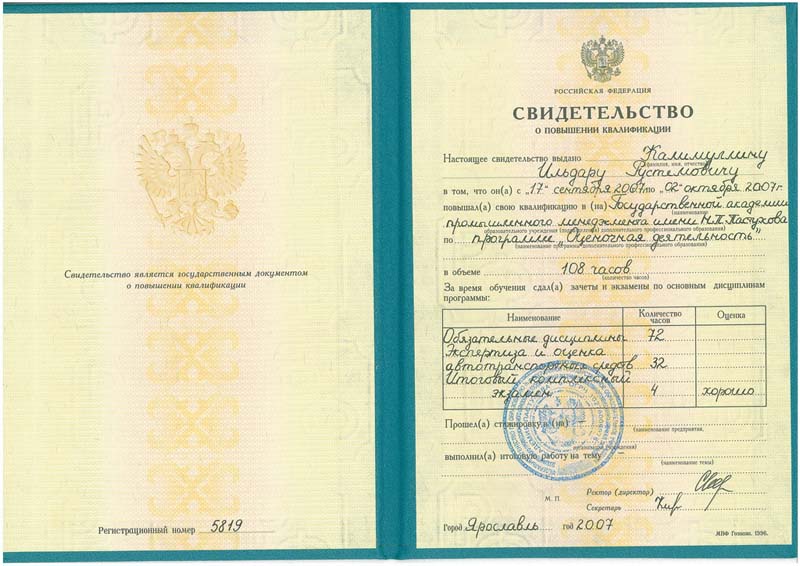 Свидетельство является государственным документом
о повышении квалификации
Регистрационный номер 5819
РОССИЙСКАЯ ФЕДЕРАЦИЯ
СВИДЕТЕЛЬСТВО
О ПОВЫШЕНИИ КВАЛИФИКАЦИИ
Настоящее свидетельство выдано Калимуллину
(фамилия, имя, отчество)
Ильдару Рустемовичу
в том, что он(а) с „17" сентября 2007 по „02" октября 2007 г.
повышал(а) свою квалификацию в (на) Государственной академии
(наименование
промышленного менеджмента имени Н.П. Пастухова
образовательного учреждения (подразделения) дополнительного профессионального образования)
по программе „Оценочная деятельность"
(наименование программы дополнительного профессионального образования)
в объеме 108 часов
(количество часов)
За время обучения сдал(а) зачеты и экзамены по основным дисциплинам
программы:
Наименование Количество часов Оценка
Обязательные дисциплины 72
Экспертиза и оценка
автотранспортных средств 32
Итоговый комплексный
экзамен 4 хорошо
Прошел(а) стажировку в (на)
(наименование предприятия,
организации, учреждения)
выполнил(а) итоговую работу на тему
(наименование темы)
М. П.
Ректор (директор)
Секретарь
Город Ярославль год 2007
МПФ Гознака. 1996.